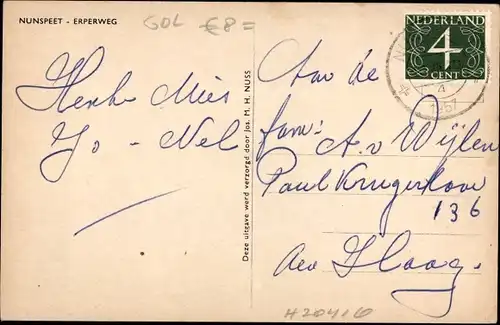 NUNSPEET - ERPERWEG
GOL €8=
Henke Mies
Jo - Nel
Deze uitgave werd verzorgd door Jos. M. H. NUSS
NEDERLAND
4
CENT
4
1957
Aan de
fam: A. v Wijlen
Paul Krugerlaan
136
den Haag.
H20416